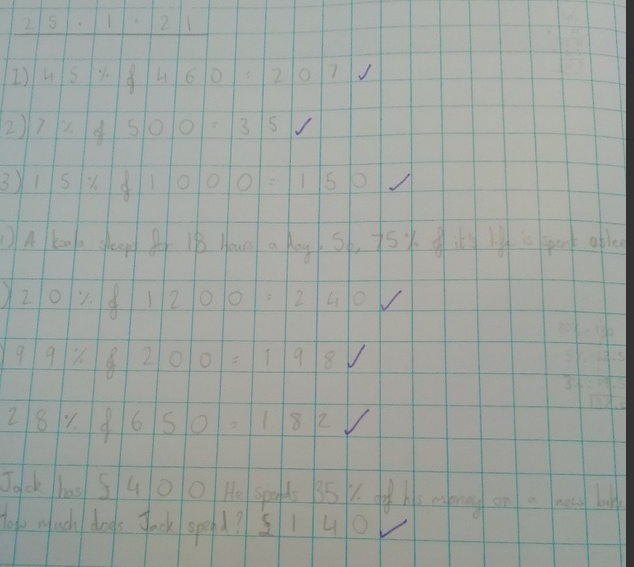 25.1.21
1) 45% of 460 = 207 ✓
2) 7% of 500 = 35 ✓
3) 15% of 1000 = 150 ✓
) A koala sleeps for 18 hours a day. So, 75% of it's life is spent aslee
) 20% of 1200 = 240 ✓
) 99% of 200 = 198 ✓
28% of 650 = 182 ✓
Jack has £400 He spends 35% of his money on a new
How much does Jack spend? £140 ✓